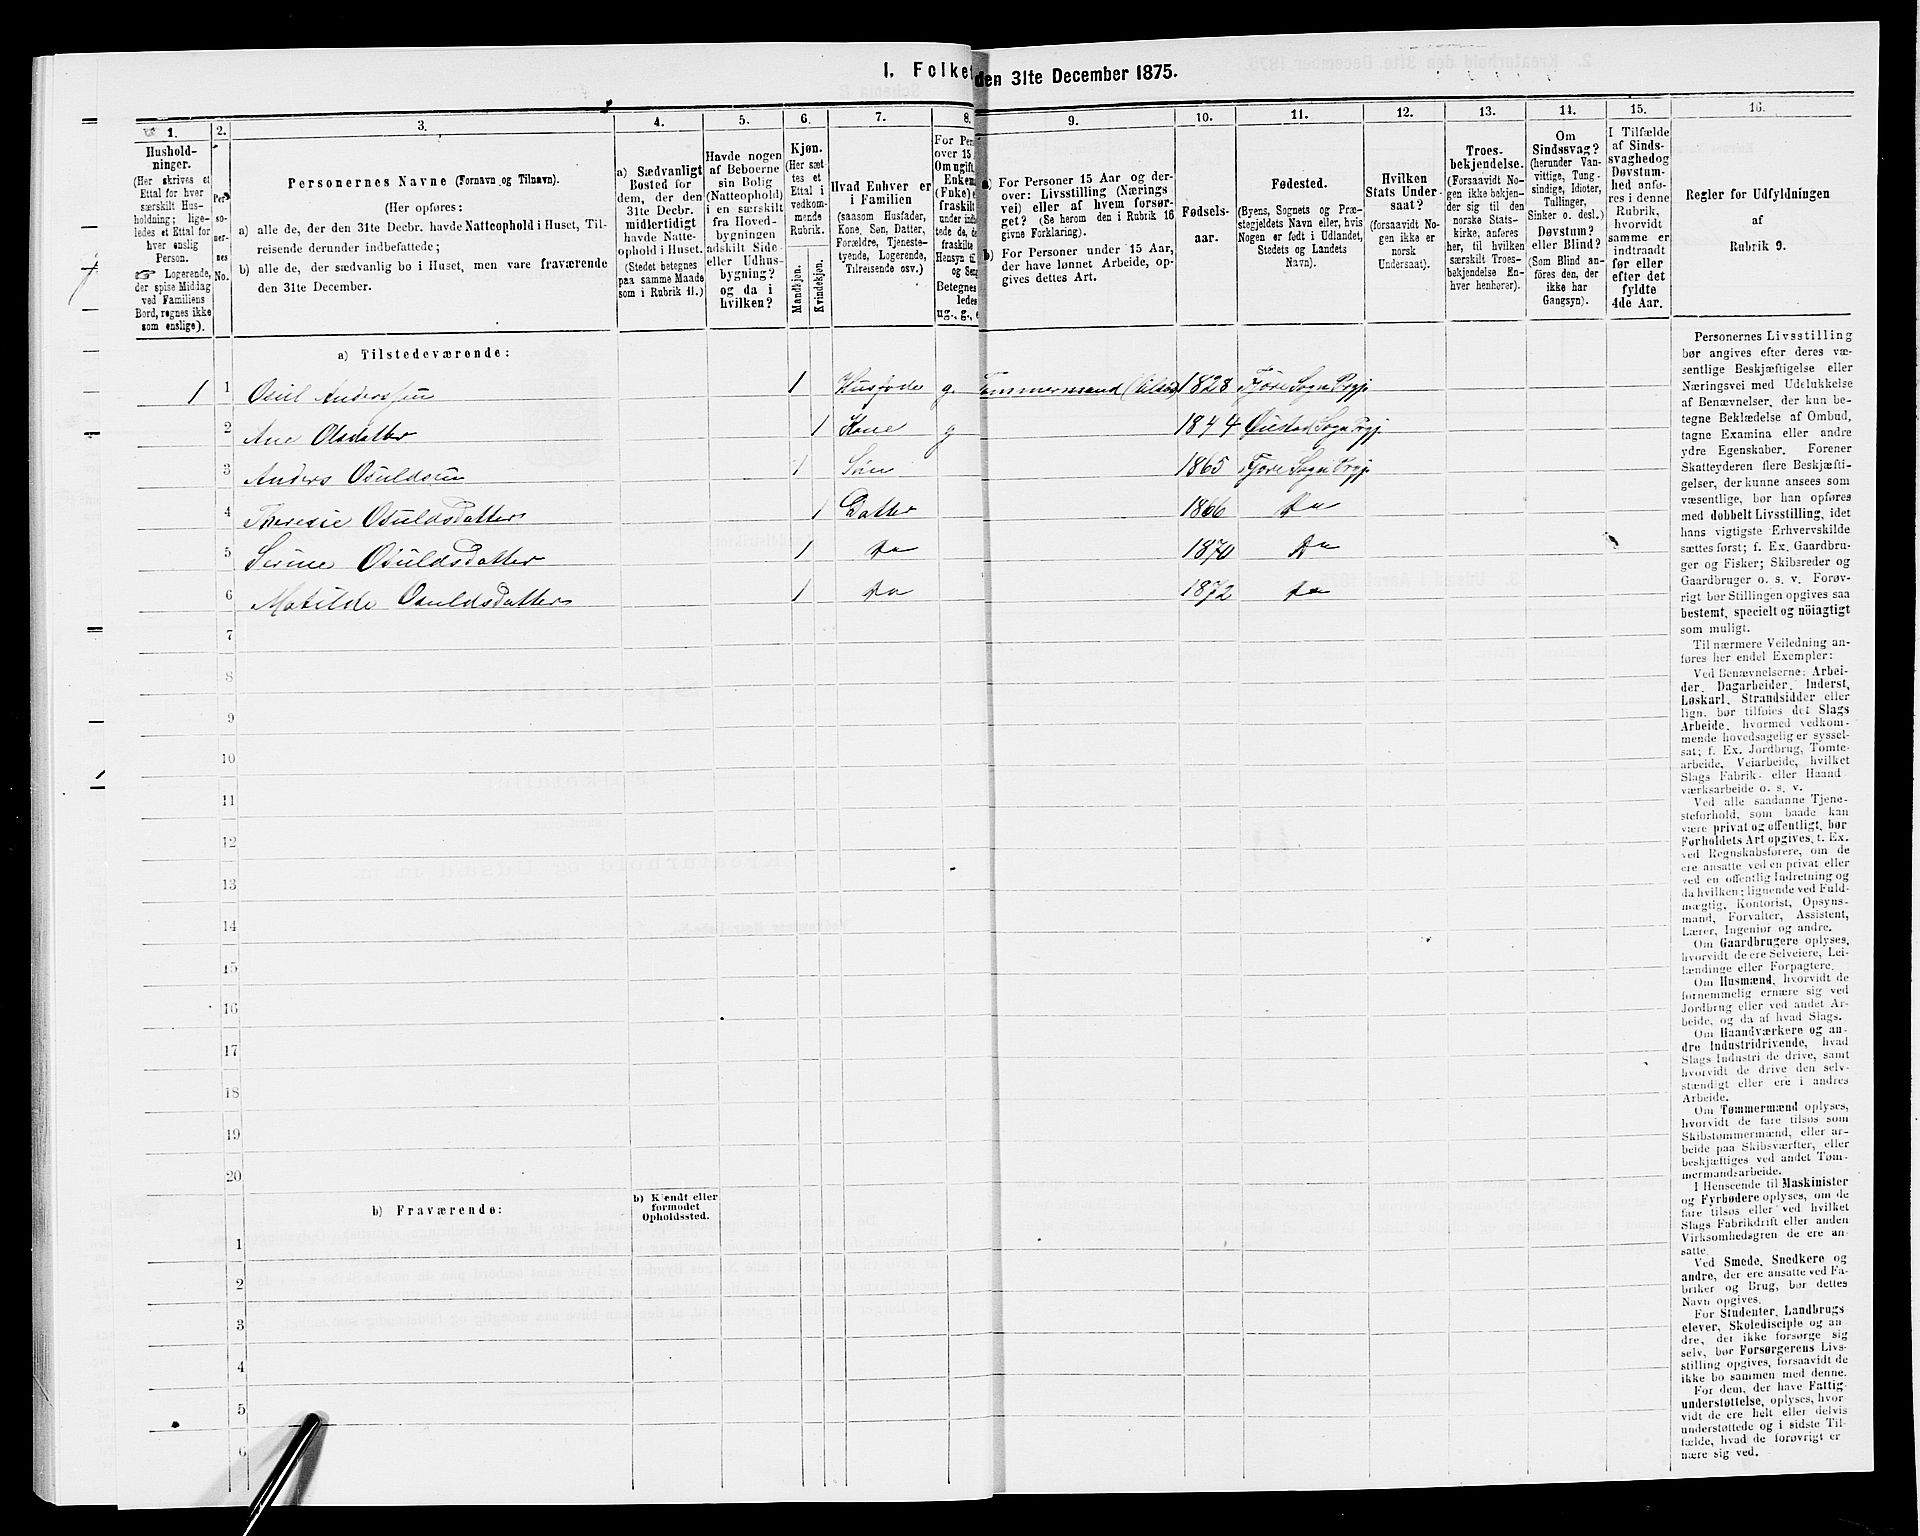 I. Folket
den 31te December 1875.
1.
2.
3.
4.
5.
6.
7.
8.
9.
10.
11.
12.
13.
14.
15.
16.
Hushold-
ninger.
(Her skrives et
Ettal for hver
særskilt Hus-
holdning; lige-
ledes et Ettal for
hver enslig
Person.
☞ Logerende,
der spise Middag
ved Familiens
Bord, regnes ikke
som enslige).
Per-
so-
ner-
nes
No.
Personernes Navne (Fornavn og Tilnavn).
(Her opføres:
a) alle de, der den 31te Decbr. havde Natteophold i Huset, Til-
reisende derunder indbefattede;
b) alle de, der sædvanlig bo i Huset, men vare fraværende
den 31te December.
a) Sædvanligt
Bosted for
dem, der den
31te Decbr.
midlertidigt
havde Natte-
ophold i Huset.
(Stedet betegnes
paa samme Maade
som i Rubrik 11.)
Havde nogen
af Beboerne
sin Bolig
(Natteophold)
i en særskilt
fra Hoved-
bygningen
adskilt Side-
eller Udhus-
bygning?
og da i
hvilken?
Kjøn.
(Her sæt-
tes et
Ettal i
vedkom-
mende
Rubrik.
Mandkjøn.
Kvindekjøn.
Hvad Enhver er
i Familien
(saasom Husfader,
Kone, Søn, Datter,
Forældre, Tjeneste-
tyende, Logerende,
Tilreisende osv.).
For Per
over 15
Om ugift,
Enkem
(Fnke)
fraskilt
under indt
tede de, de
fraskilte
Hensyn ti
og Sen
Betegnes
ledes
ug., g., e
a) For Personer 15 Aar og der-
over: Livsstilling (Nærings
vei) eller af hvem forsør-
get? (Se herom den i Rubrik 16
givne Forklaring).
b) For Personer under 15 Aar,
der have lønnet Arbeide, op-
gives dettes Art.
Fødsels-
aar.
Fødested.
(Byens, Sognets og Præ-
stegjeldets Navn eller, hvis
Nogen er født i Udlandet,
Stedets og Landets
Navn).
Hvilken
Stats Under-
saat?
(forsaavidt No-
gen ikke er
norsk
Undersaat).
Troes-
bekjendelse.
(Forsaavidt No-
gen ikke bekjen-
der sig til den
norske Stats-
kirke, anføres
her, til hvilken
særskilt Troes-
bekjendelse En-
hver henhører).
Om
Sindssvag?
(herunder Van-
vittige, Tung-
sindige, Idioter,
Tullinger,
Sinker o. desl.)
Døvstum?
eller Blind?
(Som Blind an-
føres den, der
ikke har
Gangsyn).
I Tilfælde
af Sinds-
svaghed og
Døvstum-
hed anfø-
res i denne
Rubrik,
hvorvidt
samme er
indtraadt
før eller
efter det
fyldte
4de Aar.
Regler for Udfyldningen
af
Rubrik 9.
a) Tilstedeværende:
1 1 Osul Anderssen 1 Husfade g. Tømmermand 1828 Fjøre Sogn Prgj.
2 Ane Olsdatter 1 Kone g 1844 Øiestad Sogn Prgj.
3 Anders Osuldsen 1 Søn 1865 Fjøre Sogn Prgj.
4 Theresie Osuldsdatter 1 Datter 1866 Do
5 Sirine Osuldsdatter 1 Do 1870 Do
6 Matilde Osuldsdatter 1 Do 1872 Do
7
8
9
10
11
12
13
14
15
16
17
18
19
20
b) Fraværende:
b) Kjendt eller
formodet
Opholdssted.
1
2
3
4
5
6
Personernes Livsstilling
bør angives efter deres væ-
sentlige Beskjæftigelse eller
Næringsvei med Udelukkelse
af Benævnelser, der kun be-
tegne Beklædelse af Ombud,
tagne Examina eller andre
ydre Egenskaber. Forener
Skatteyderen flere Beskjæfti-
gelser, der kunne ansees som
væsentlige, bør han opføres
med dobbelt Livsstilling, idet
hans vigtigste Erhvervskilde
sættes først; f. Ex. Gaardbru-
ger og Fisker; Skibsreder og
Gaardbruger o. s. v. Forøv-
rigt bør Stillingen opgives saa
bestemt, specielt og nöiagtigt
som muligt.
Til nærmere Veiledning an-
føres her endel Exempler:
Ved Benævnelserne: Arbei-
der, Dagarbeider, Inderst,
Løskarl, Strandsidder eller
lign. bør tilføies det Slags
Arbeide, hvormed vedkom-
mende hovedsagelig er syssel-
sat; f. Ex. Jordbrug, Tomte-
arbeide, Veiarbeide, hvilket
Slags Fabrik- eller Haand
værksarbeide o. s. v.
Ved alle saadanne Tjene-
steforhold, som baade kan
være privat og offentligt, bør
Forholdets Art opgives, t. Ex.
ved Regnskabsførere, om de
ere ansatte ved en privat eller
ved en offentlig Indretning og
da hvilken; lignende ved Fuld-
mægtig, Kontorist, Opsyns-
mand, Forvalter, Assistent,
Lærer, Ingeniør og andre.
Om Gaardbrugere oplyses,
hvorvidt de ere Selveiere, Lei-
lændinge eller Forpagtere.
Om Husmænd, hvorvidt de
fornemmelig ernære sig ved
Jordbrug eller ved andet Ar-
beide, og da af hvad Slags.
Om Haandværkere og an-
dre Industridrivende, hvad
Slags Industri de drive, samt
hvorvidt de drive den selv-
stændigt eller ere i andres
Arbeide.
Om Tømmermænd oplyses,
hvorvidt de fare tilsøs som
Skibstømmermænd, eller ar-
beide paa Skibsværfter, eller
beskjæftiges ved andet Tøm-
mermandsarbeide.
I Henseende til Maskinister
og Fyrbødere oplyses, om de
fare tilsøs eller ved hvilket
Slags Fabrikdrift eller anden
Virksomhedsgren de ere an-
satte.
Ved Smede, Snedkere og
andre, der ere ansatte ved Fa-
briker og Brug, bør dettes
Navn opgives.
For Studenter, Landbrugs
elever, Skoledisciple og an-
dre, der ikke forsørge sig
selv, bør Forsørgerens Livs-
stilling opgives, forsaavidt de
ikke bo sammen med denne.
For dem, der have Fattig-
understøttelse, oplyses, hvor-
vidt de ere helt eller delvis
understøttede og i sidste Til-
fælde, hvad de forøvrigt er
nære sig ved.